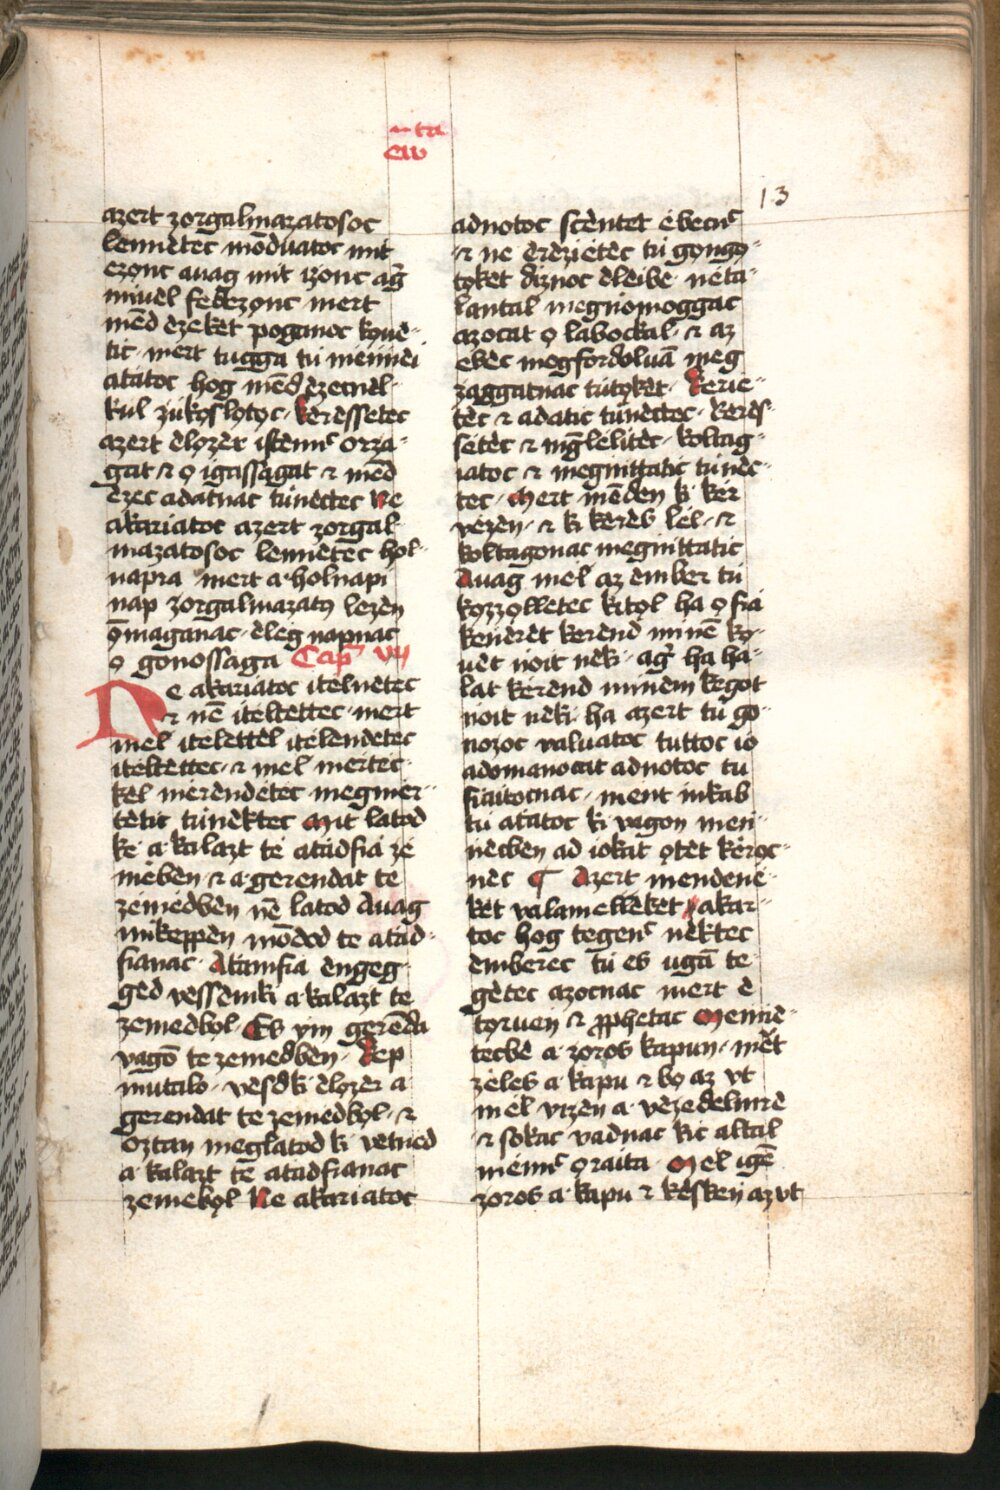 13
azert zorgalmazatosoc
lennètec mōduatoc mit
ezonc auag mit izonc ag̃
miuel fedezonc mert
mēd ezèkèt poganoc kouè-
tic mert tugga tu mennèi
atatoc hog mēd ezecnèl-
kul zukosloţoc Keressetec
azert èlozer istennc̃ orza-
gat ⁊ o igassagat ⁊ mēd
èzec adatnac tunèctec Ne
akariatoc azert zorgal-
mazatosoc lennètec hol-
napra mert a holnapi
nap zorgalmazatos lezèn
ōmaganac elèg napnac
o gonossaga Cap VII
Ne akariatoc itelnetec
⁊ nē itèltèttec mert
mèl itèlèttèl itèlendetec
itèltèttec ⁊ mel mertec-
kèl merèndètec megmer-
tètic tunèktec Mit latod
kè a kalazt te atadfia zè
mèben ⁊ a gerendat te
zèmèdbèn nē latod Auag
mikeppèn mōdod te atad-
fianac Atamfia engèg-
gèd vessèmki a kalazt te
zemedbol Es ym gerēda
vagō te zemèdbèn Kep
mutalo vesdki èlozer a
gerendat te zemedbol ⁊
oztan meglatod ki vètned
a kalazt tè atadfianac
zemebol Ne akariatoc
adnotoc scèntèt èbecnc̃
⁊ ne erèzietèc tu gongo-
tokèt diznoc èleibè neta-
lantal megnomoggac
azocat o labockal ⁊ az
ebèc megfordoluā meg
zaggatnac tutokèt Kerie-
tèc ⁊ adatic tunèctec Keres-
sètèc ⁊ mg̃lelitèc koltag-
iatoc ⁊ megnittatic tunèc-
tec Mert mēden ki kèr
vezèn ⁊ ki kèrès lèl ⁊
koltagonac megnittatic
Auag mel az èmber tu
kozzolletec kitol ha o fia
kènèrèt kerènd minē ko-
uèt noit nèki ag̃ ha ha-
lat kèrènd minèm kègot
noit nèki ha azert tu go-
nozoc valuatoc tuttoc io
adomanocat adnotoc tu
fiaitocnac ment inkab
tu atatoc ki vagon men-
nècben ad iokat otèt kèroc-
nèc ¶ Azert mendènè-
kèt valamellèkèt akar-
toc hog tègenc̃ nèktec
èmberec tu es ugā te-
gètec azocnac mert è
toruèn ⁊ ꝓphetac Mennè-
tecbè a zoros kapun mèt
zèles a kapu ⁊ bo az vt
mel vizèn a vèzèdèlmrè
⁊ sokac vadnac kic altal
mènnc̃ oraita Mel igē
zoros a kapu ⁊ kèskèn az vt